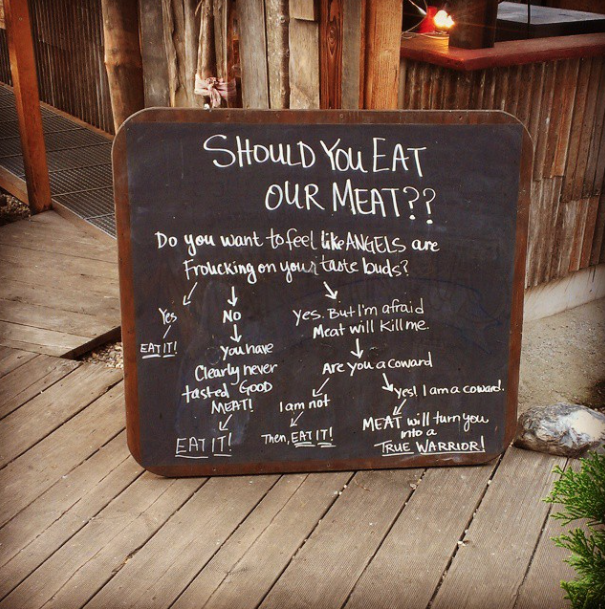 SHOULD YOU EAT
OUR MEAT??
Do you want to feel like ANGELS are
Froucking on your taste buds?
Yes
EAT IT!
NO
You have
Clearly never
tasted GOOD
MEAT!
EAT IT!
Yes. But I'm afraid
Meat will Kill me.
Are you a coward
I am not
Then, EAT IT!
Yes! I am a coward.
MEAT will turn you
into a
TRUE WARRIOR!